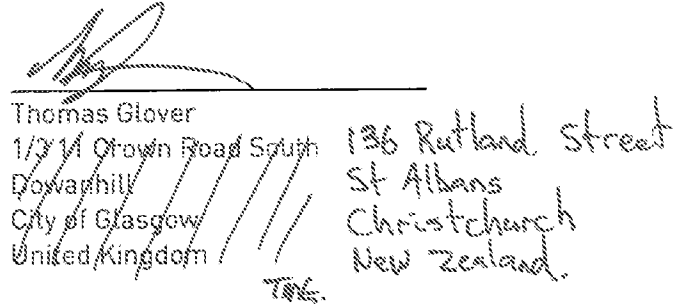 Thomas Glover
1/3 11 Crown Road South
Dowanhill
City of Glasgow
United Kingdom
136 Rutland Street
St Albans
Christchurch
New Zealand.
TMG.